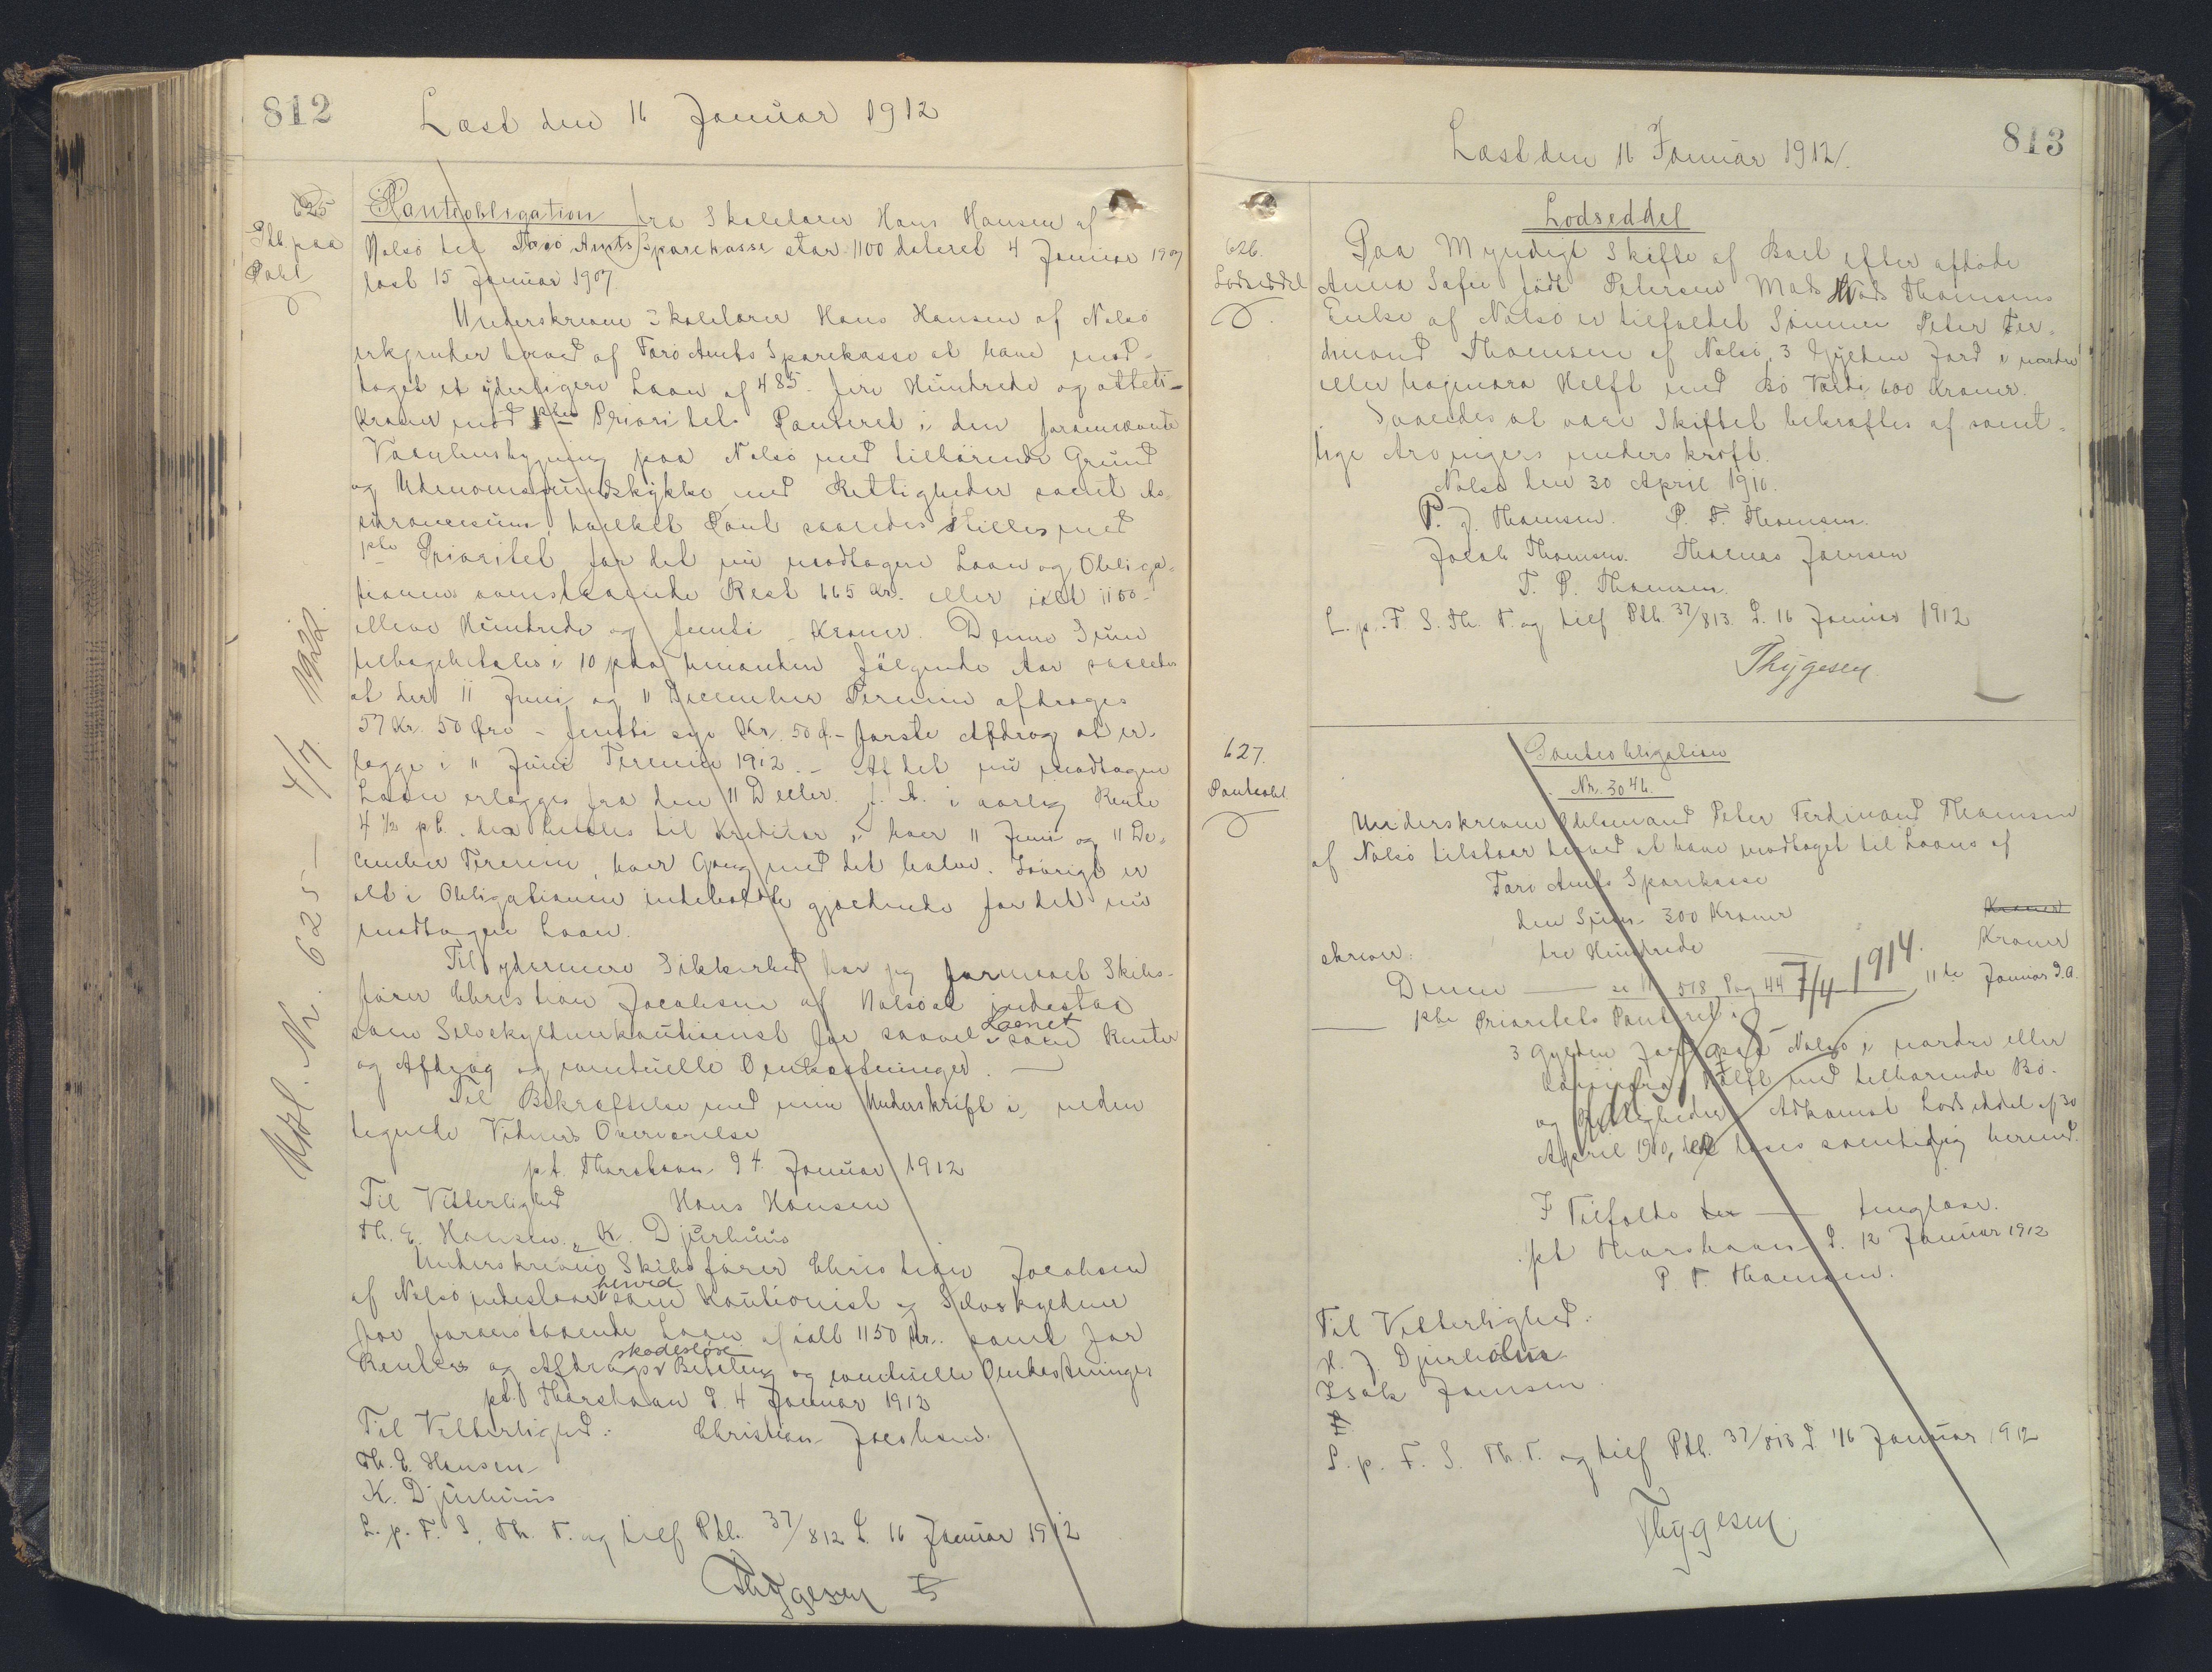 812
Læst den 16 Januar 1912
625
Ptb. paa
Pobl.
Panteobligation fra Skolelærer Hans Hansen af
Nolsö til Færö Amts Sparekasse stor 1100 dateret 4 Januar 1907
læst 15 Januar 1907.
Underskrevne Skolelærer Hans Hansen af Nolsö
erkjender herved af Færö Amts Sparekasse at have mod-
taget et yderligere Laan af 485 - fire Hundrede og otteti -
Kroner mod 1ste Prioritets Panteret i den fornævnte
Vaaningsbygning paa Nolsö med tilhörende Grund
og Udenomsgrundstykke med Rettigheder samt As-
surancesum, hvilket Pant saaledes stilles med
1ste Prioritet for det nu modtagne Laan og Obliga-
tionens oenstaaende Rest 665 Kr. eller ialt 1150 -
elleve Hundrede og femti - Kroner. Denne Sum
tilbagebetales i 10 paa hinanden fölgende Aar saaledes
at der 11 Juni og 11 December Termin afdrages
57 Kr. 50 Öre - femti syv Kr. 50 Ø. - förste Afdrag at er-
lægge i 11 Juni Termin 1912. - Af det nu modtagne
Laan erlægges fra den 11 Decbr. f. A. i aarlig Rente
4 1/2 pCt. der betales til Kreditor i hver 11 Juni og 11 De-
cember Termin, hver Gang med det halve. Iövrigt er
alt i Obligationen indeholdte gjældende for det nu
modtagne Laan.
Til ydermere Sikkerhed har jeg formaaet Skibs-
förer Christian Jacobsen af Nolsö at indestaa
som Selvskyldnerkautionist for saavel Laanet som Renter
og Afdrag og eventuelle Omkostninger.
Til Bekræftelse med min Underskrift i neden
tegnede Vidners Overværelse
pt. Thorshavn d 4 Januar 1912
Til Vitterlighed Hans Hansen
Th. E. Hansen, K. Djurhuus
Underskrevne Skibsförer Christian Jacobsen
af Nolsö indestaar herved som Kautionist og Selvskyldner
for foranstaaende Laan af ialt 1150 Kr. samt for
Renters og Afdrags skadeslöse Betaling og eventuelle Omkostninger
pt. Thorshavn d. 4 Januar 1912
Til Vitterlighed: Christian Jacobsen.
Th. E. Hansen
K. Djurhuus
L. p. F. S. Th. T. og tilf Ptb. 37/812 d. 16 Januar 1912
Thygesen
Udsl. Nr. 625 — 4/7 1922.
813
Læst den 16 Januar 1912.
626.
Lodseddel
Lodseddel
Paa Myndigt Skifte af Boet efter afdöde
Anna Sofie födt Petersen Mads Thomsens
Enke af Nolsö er tilfaldet Sönnen Peter Fer-
dinand Thomsen af Nolsö, 3 Gylden Jord i nordre
eller höjmora Helft med Bö Værdi 600 Kroner.
Saaledes at være Skiftet bekræftes af samt-
lige Arvingers underskrift.
Nolsö den 30 April 1910.
P. J. Thomsen. P. F. Thomsen.
Jacob Thomsen. Thomas Joensen
T. P. Thomsen.
L. p. F. S. Th. T. og tilf Ptb. 37/813. d. 16 Januar 1912
Thygesen
627.
Panteobl
Panteobligation
Nr. 3046.
Underskrevne Odelsmand Peter Ferdinand Thomsen
af Nolsö tilstaar herved at have modtaget til Laans af
Færö Amts Sparekasse
den Sum 300 Kroner Kroner
skriver: tre Hundrede Kroner
Denne — se N 518 Pag 44 — 11te Januar d. A.
— 1ste Prioritets Panteret i
3 Gylden Jord paa Nolsö i nordre eller
Helft med tilhörende Bö.
og Herligheder Adkomst Lodseddel af 30
April 1910, der læses samtidig hermed.
7/4 1914.
I Tilfælde der — tinglæse.
pt Thorshavn d. 12 Januar 1912
P. F. Thomsen.
Til Vitterlighed:
H. J. Djurholm
Isak Joensen
L. p. F. S. Th. T. og tilf Ptb. 37/813 d 16 Januar 1912
Thygesen